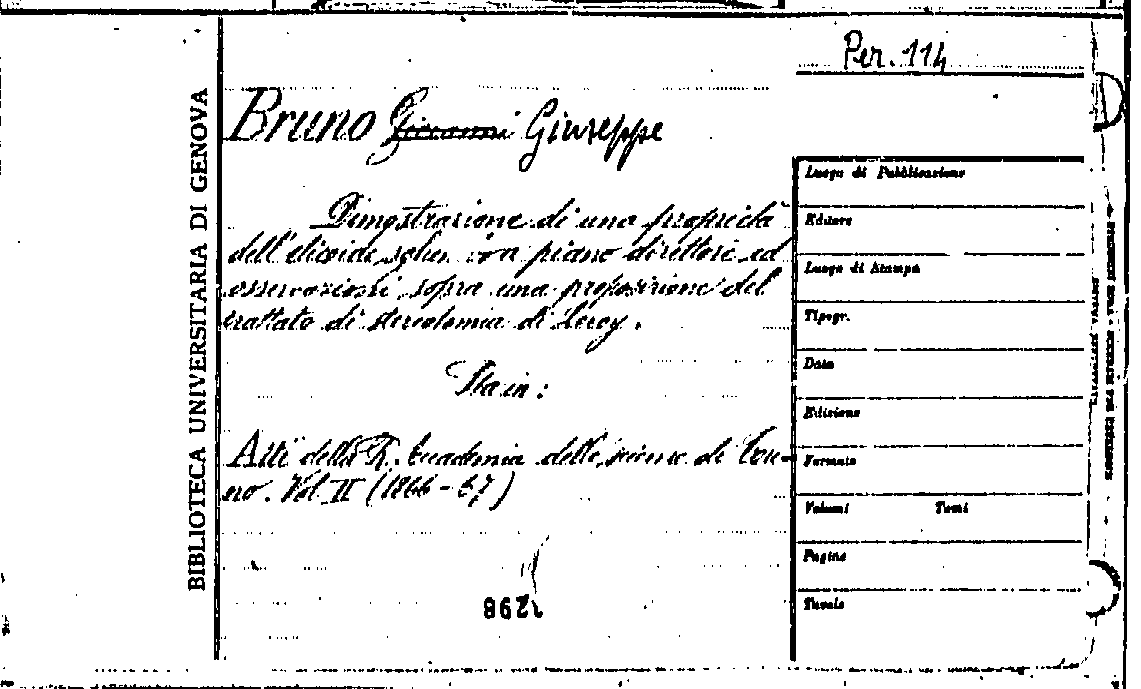 Per. 114
BIBLIOTECA UNIVERSITARIA DI GENOVA
Bruno Giovanni Giuseppe
Dimostrazione di una proprietà
dell'elicoide a piano direttore ed
osservazioni sopra una proposizione del
trattato di stereotomia di Leroy.
Sta in:
Atti della R. Accademia delle scienze di Tori-
no. Vol II (1866-67)
1298
Luogo di Pubblicazione
Editore
Luogo di Stampa
Tipogr.
Data
Edizione
Formato
Volumi Tomi
Pagine
Tavole